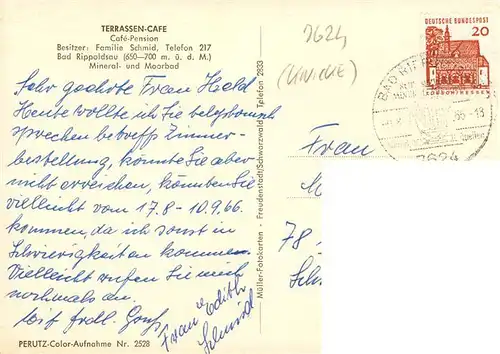 TERRASSEN-CAFE
Café-Pension
Besitzer: Familie Schmid, Telefon 217
Bad Rippoldsau (650—700 m. ü. d. M.)
Mineral- und Moorbad
Sehr geehrte Frau Held
Heute wollte ich Sie telephonisch
sprechen betreff Zimmer-
bestellung, konnte Sie aber
nicht erreichen, könnten Sie
vielleicht vom 17.8 - 10.9.66
kommen, da ich sonst in
Schwierigkeiten komme.
Vielleicht rufen Sie mich
nochmals an.
Mit frdl. Gruß
Frau Edith
Schmid
PERUTZ-Color-Aufnahme Nr. 2528
Müller-Fotokarten - Freudenstadt/Schwarzwald - Telefon 2833
7624
DEUTSCHE BUNDESPOST
20
LORSCH/HESSEN
BAD RIPP
66-18
7624
Frau
M
78